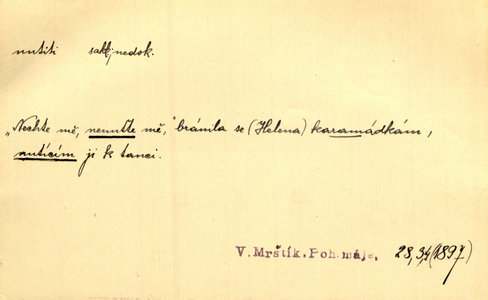 nutiti sakkjnedok.
„Nechte mě, nenuťte mě,“ bránila se (Helena) karamádkám,
nutícím ji k tanci.
V. Mrštík. Poh. mája, 28,34 (1897)